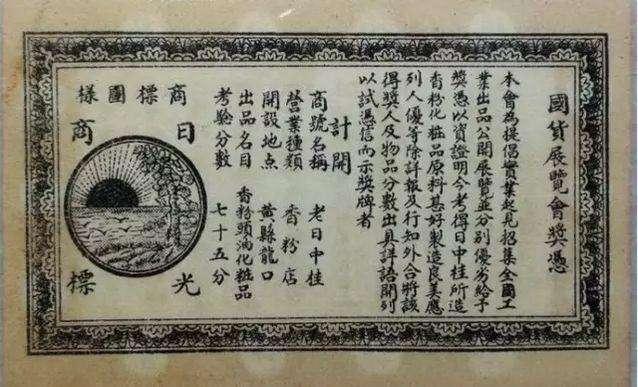 國貨展覽會獎憑
本會為提倡實業起見招集全國工
業出品公開展覽並分別優劣給予
獎憑以資證明今考得日中桂所造
香粉化粧品原料甚好製造良美應
列人優等除詳報及行知外合將該
得獎人及物品分數出具詳語開列
以試憑信而示獎牌者
計開
商號名稱 老日中桂
營業種類 香粉店
開設地点 黄縣龍口
出品名目 香粉頭油化粧品
考驗分數 七十五分
商標圖樣
日光
商標